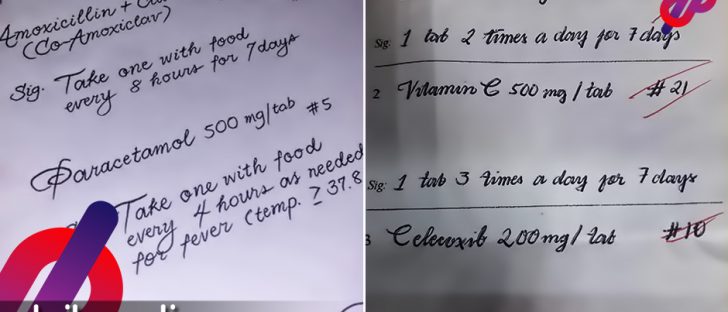 Amoxicillin +
(Co-Amoxiclav)
Sig. Take one with food
every 8 hours for 7 days
Paracetamol 500 mg/tab #5
Take one with food
every 4 hours as needed
for fever (temp. ≥ 37.8
Sig: 1 tab 2 times a day for 7 days
2 Vitamin C 500 mg / tab #21
Sig: 1 tab 3 times a day for 7 days
3 Celecoxib 200 mg / tab #10